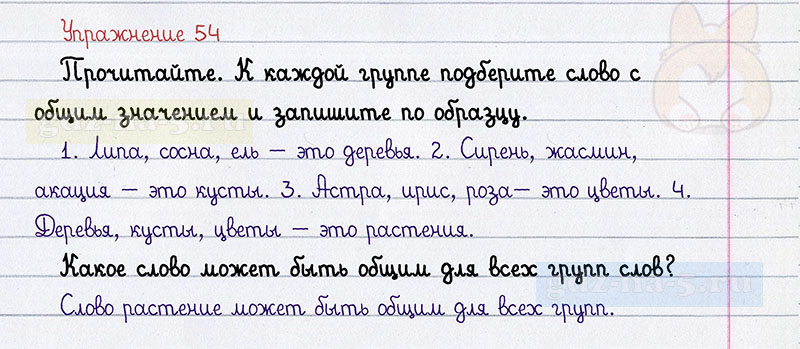 Упражнение 54
Прочитайте. К каждой группе подберите слово с
общим значением и запишите по образцу.
1. Липа, сосна, ель — это деревья. 2. Сирень, жасмин,
акация — это кусты. 3. Астра, ирис, роза— это цветы. 4.
Деревья, кусты, цветы — это растения.
Какое слово может быть общим для всех групп слов?
Слово растение может быть общим для всех групп.
gdz-na-5.ru